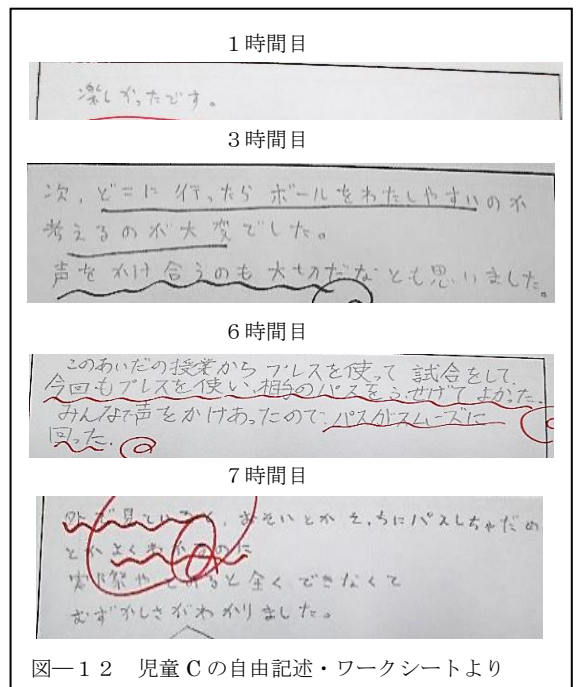 1時間目
楽しかったです。
3時間目
次、どこに行ったらボールをわたしやすいのか
考えるのが大変でした。
声をかけ合うのも大切だなとも思いました。
6時間目
このあいだの授業からプレスを使って試合をして、
今回もプレスを使い、相手のパスをふせげてよかった。
みんなで声をかけあったので、パスがスムーズに
回った。
7時間目
外で見ていると、おそいとかそっちにパスしちゃだめ
とかよくわかるのに
実際やってみると全くできなくて
むずかしさがわかりました。
図―12 児童Cの自由記述・ワークシートより